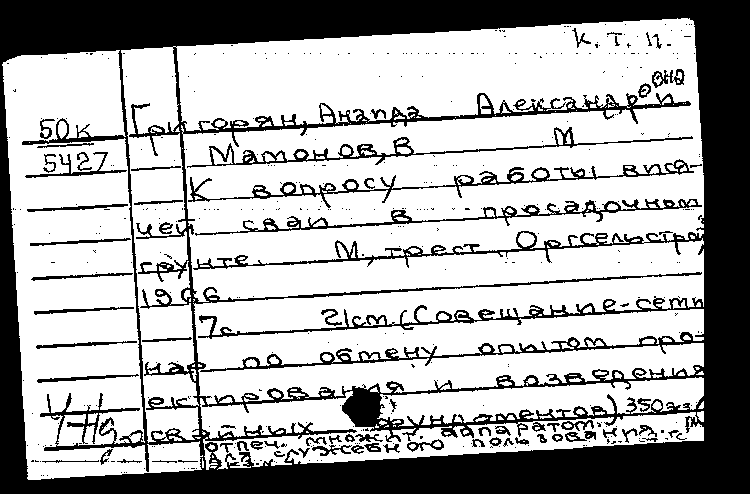 К. Т. П.
50к Григорян, Ананда Александровна и
5427 Мамонов, В М
К вопросу работы вися-
чей сваи в просадочном
грунте. М, трест Оргсельстрой,
1966.
7с. 21см. (Совещание-семи
нар по обмену опытом про-
ектирования и возведения
свайных фундаментов). 350 экз.
отпеч. множит. аппаратом.
Для служебного пользования.